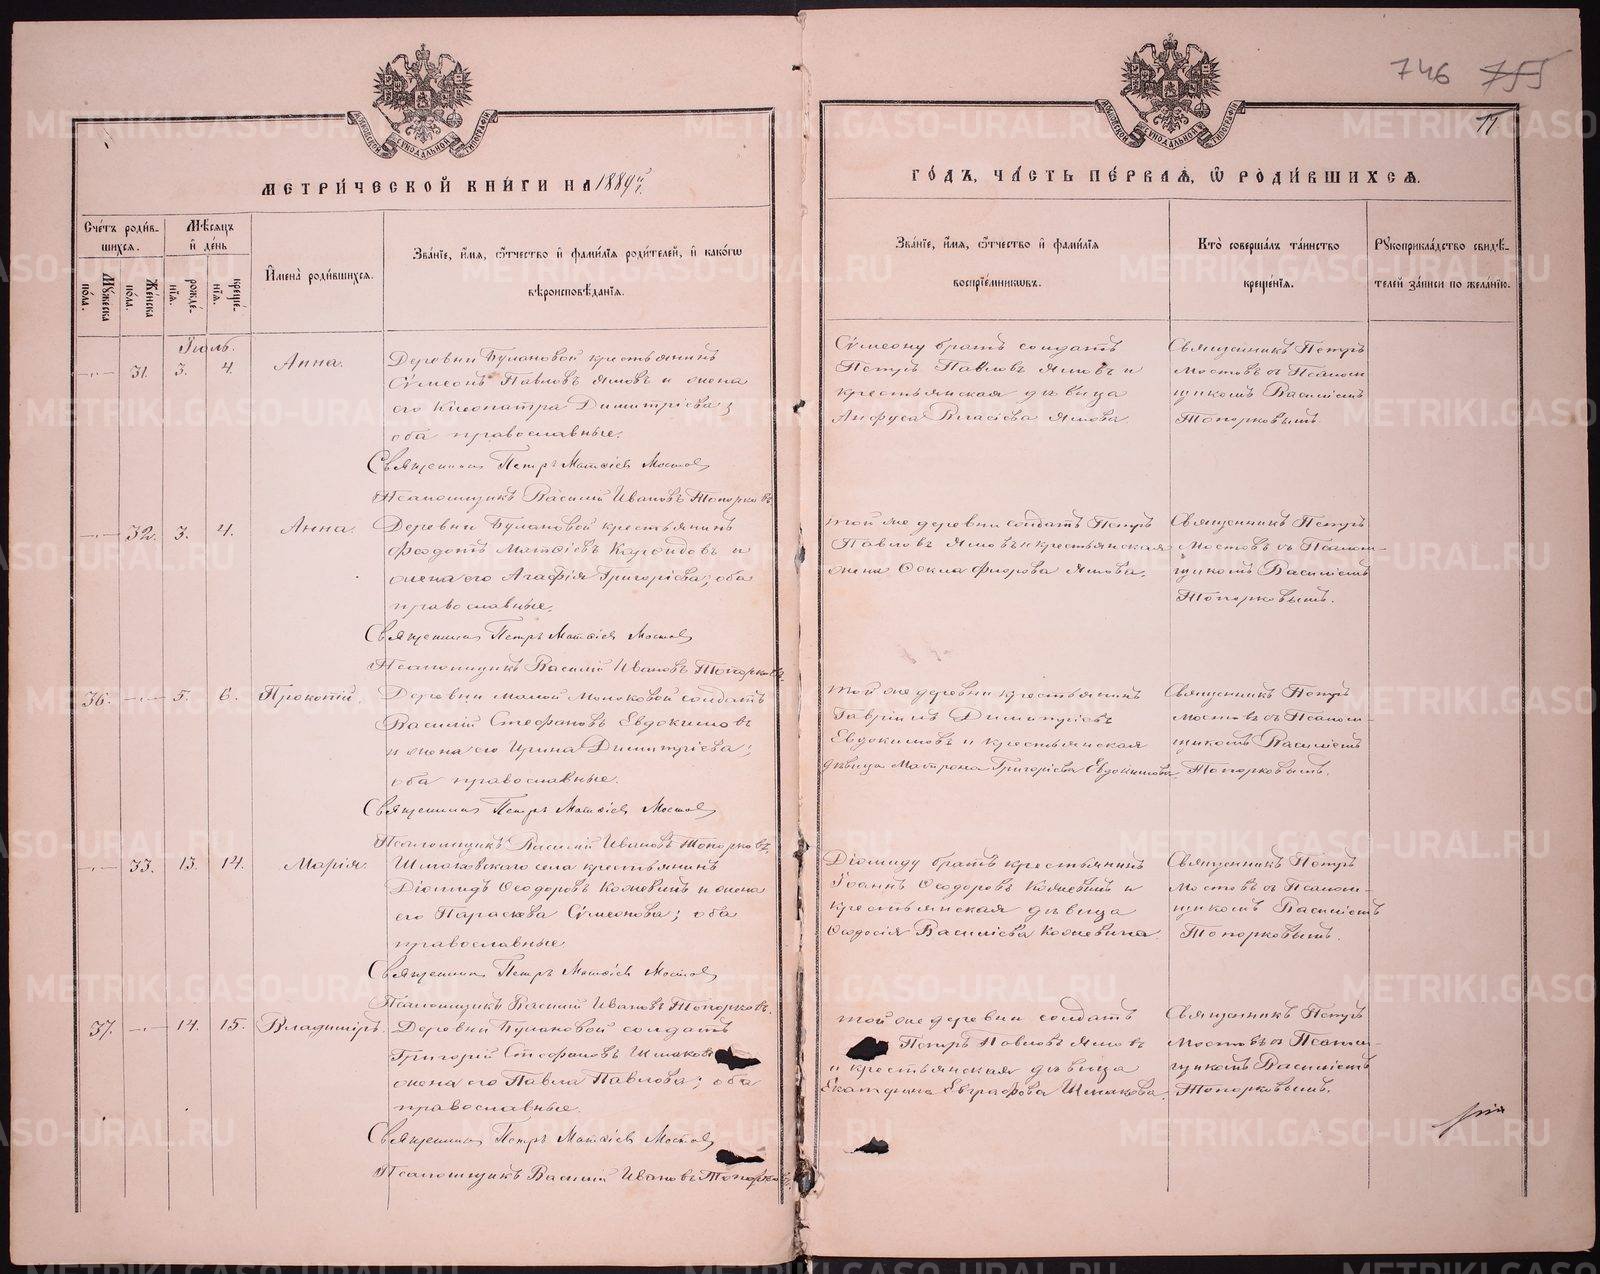 746 755
11
МЕТРИЧЕСКОЙ КНИГИ НА 1889 й г.
ГОДЪ, ЧАСТЬ ПЕРВАЯ, Ѽ РОДИВШИХСЯ.
МОСКОВСКОЙ СѴНОДАЛЬНОЙ ТИПОГРАФІИ
МОСКОВСКОЙ СѴНОДАЛЬНОЙ ТИПОГРАФІИ
Счетъ родившихся.
Мужеска пола.
Женска пола.
Мѣсяцъ и день
рожденія.
крещенія.
Имена родившихся.
Званіе, имя, ѿчество и фамилія родителей, и какогѡ вѣроисповѣданія.
Званіе, имя, ѿчество и фамилія воспріемниковъ.
Кто совершалъ таинство крещенія.
Рукоприкладство свидѣтелей записи по желанію.
Іюль.
31. 3. 4. Анна.
Деревни Булановой крестьянинъ
Сѵмеонъ Павловъ Ямовъ и жена
его Клеопатра Димитріева;
оба православные.
Священникъ Петръ Матѳіевъ Мостовъ
Псаломщикъ Василій Ивановъ Топорковъ
Сѵмеону братъ солдатъ
Петръ Павловъ Ямовъ и
крестьянская дѣвица
Анфуса Власіева Ямова
Священникъ Петръ
Мостовъ съ Псалом-
щикомъ Василіемъ
Топорковымъ.
32. 3. 4. Анна.
Деревни Булановой крестьянинъ
Ѳеодотъ Матѳіевъ и
жена его Агафія Григоріева; оба
православные.
Священникъ Петръ Матѳіевъ Мостовъ
Псаломщикъ Василій Ивановъ Топорковъ.
той же деревни солдатъ Петръ
Павловъ Ямовъ и крестьянская
жена Ѳекла Ямова.
Священникъ Петръ
Мостовъ съ Псалом-
щикомъ Василіемъ
Топорковымъ.
36. 5. 6. Прокопій.
Деревни Малой солдатъ
Василій Стефановъ Евдокимовъ
и жена его Ирина Димитріева;
оба православные.
Священникъ Петръ Матѳіевъ Мостовъ
Псаломщикъ Василій Ивановъ Топорковъ.
той же деревни крестьянинъ
Гавріилъ Димитріевъ
Евдокимовъ и крестьянская
дѣвица Матрона Григоріева Евдокимова
Священникъ Петръ
Мостовъ съ Псалом-
щикомъ Василіемъ
Топорковымъ.
33. 13. 14. Марія.
Шмаковскаго села крестьянинъ
Діомидъ Ѳеодоровъ Кожевинъ и жена
его Параскева Сѵмеонова; оба
православные
Священникъ Петръ Матѳіевъ Мостовъ
Псаломщикъ Василій Ивановъ Топорковъ.
Діомиду братъ крестьянинъ
Іоаннъ Ѳеодоровъ Кожевинъ и
крестьянская дѣвица
Ѳеодосія Василіева Кожевина.
Священникъ Петръ
Мостовъ съ Псалом-
щикомъ Василіемъ
Топорковымъ.
37. 14. 15. Владиміръ.
Деревни Булановой солдатъ
Григорій Стефановъ
жена его Павла Павлова; оба
православные.
Священникъ Петръ Матѳіевъ Мостовъ
Псаломщикъ Василій Ивановъ Топорковъ.
той же деревни солдатъ
Петръ Павловъ Ямовъ
и крестьянская дѣвица
Екатерина Евграфова Шмакова.
Священникъ Петръ
Мостовъ съ Псалом-
щикомъ Василіемъ
Топорковымъ.
METRIKI.GASO-URAL.RU